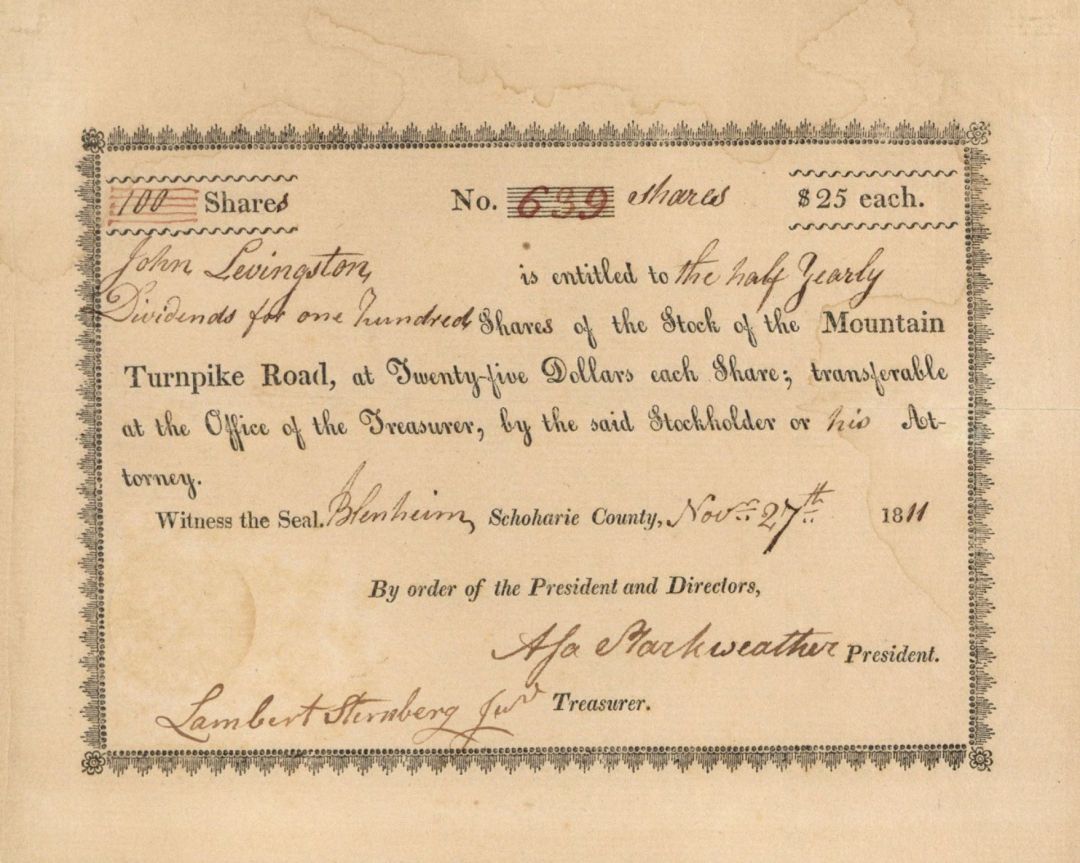 100 Shares No. 639 shares $25 each.
John Levingston, is entitled to the half Yearly
Dividends for one hundred Shares of the Stock of the Mountain
Turnpike Road, at Twenty-five Dollars each Share; transferable
at the Office of the Treasurer, by the said Stockholder or his At-
torney.
Witness the Seal. Blenheim, Schoharie County, Novr. 27th 1811
By order of the President and Directors,
Asa Starkweather President.
Lambert Sternberg Junr Treasurer.